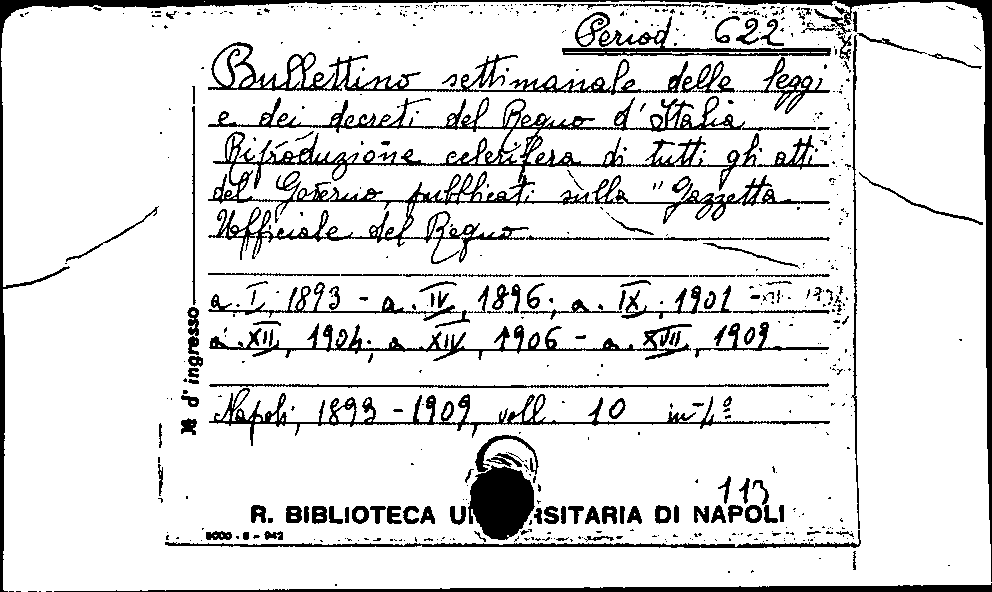 Period. 622
Bullettino settimanale delle leggi
e dei decreti del Regno d'Italia
Riproduzione celerifera di tutti gli atti
del Governo, pubblicati sulla "Gazzetta
Uofficiale del Regno
a. I, 1893 - a. IV, 1896; a. IX, 1901 -
a. XII, 1904; a. XIV, 1906 - a. XVII, 1909
Napoli, 1893 - 1909, voll. 10 in-4º
113
R. BIBLIOTECA UNIVERSITARIA DI NAPOLI
N. d'ingresso